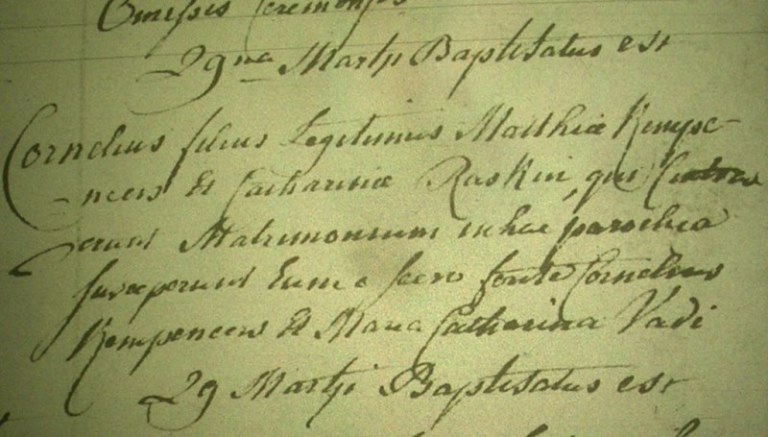 Omissis Ceremoniis
29na Martji Baptisatus est
Cornelius filius Legitimus Matthiæ Kempe-
neers Et Catharinæ Raskin, qui
Matrimonium in hac parochia
Susceperunt Eum e sacro fonte Cornelius
Kempeneers Et Maria Catharina Vadi
29 Martji Baptisatus est